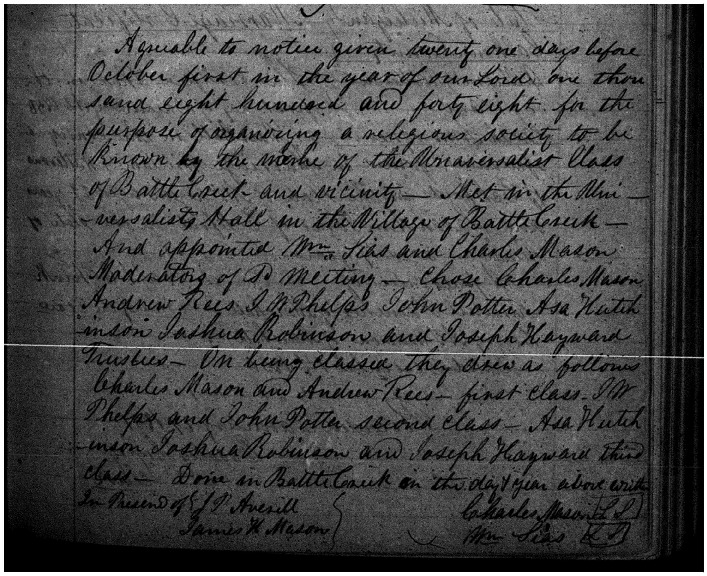 Agreable to notice given twenty one days before
October first in the year of our Lord one thou
sand eight hundred and forty eight for the
purpose of organising a religious society to be
known by the name of the Unaversalist Class
of Battle Creek and vicinity — Met in the Uni -
-versalists Hall in the Village of Battle Creek —
And appointed Wm Sias and Charles Mason
Moderators of Sd Meeting — Chose Charles Mason
Andrew Rees I W Phelps John Potter Asa Hutch
inson Joshua Robinson and Joseph Hayward
Trustees — On being classed they drew as follows
Charles Mason and Andrew Rees — first class - I W
Phelps and John Potter second class — Asa Hutch
-inson Joshua Robinson and Joseph Hayward third
class — Done in Battle Creek on the day & year above
In Presend of J P Averill Charles Mason L S
James H Mason Wm Sias L S